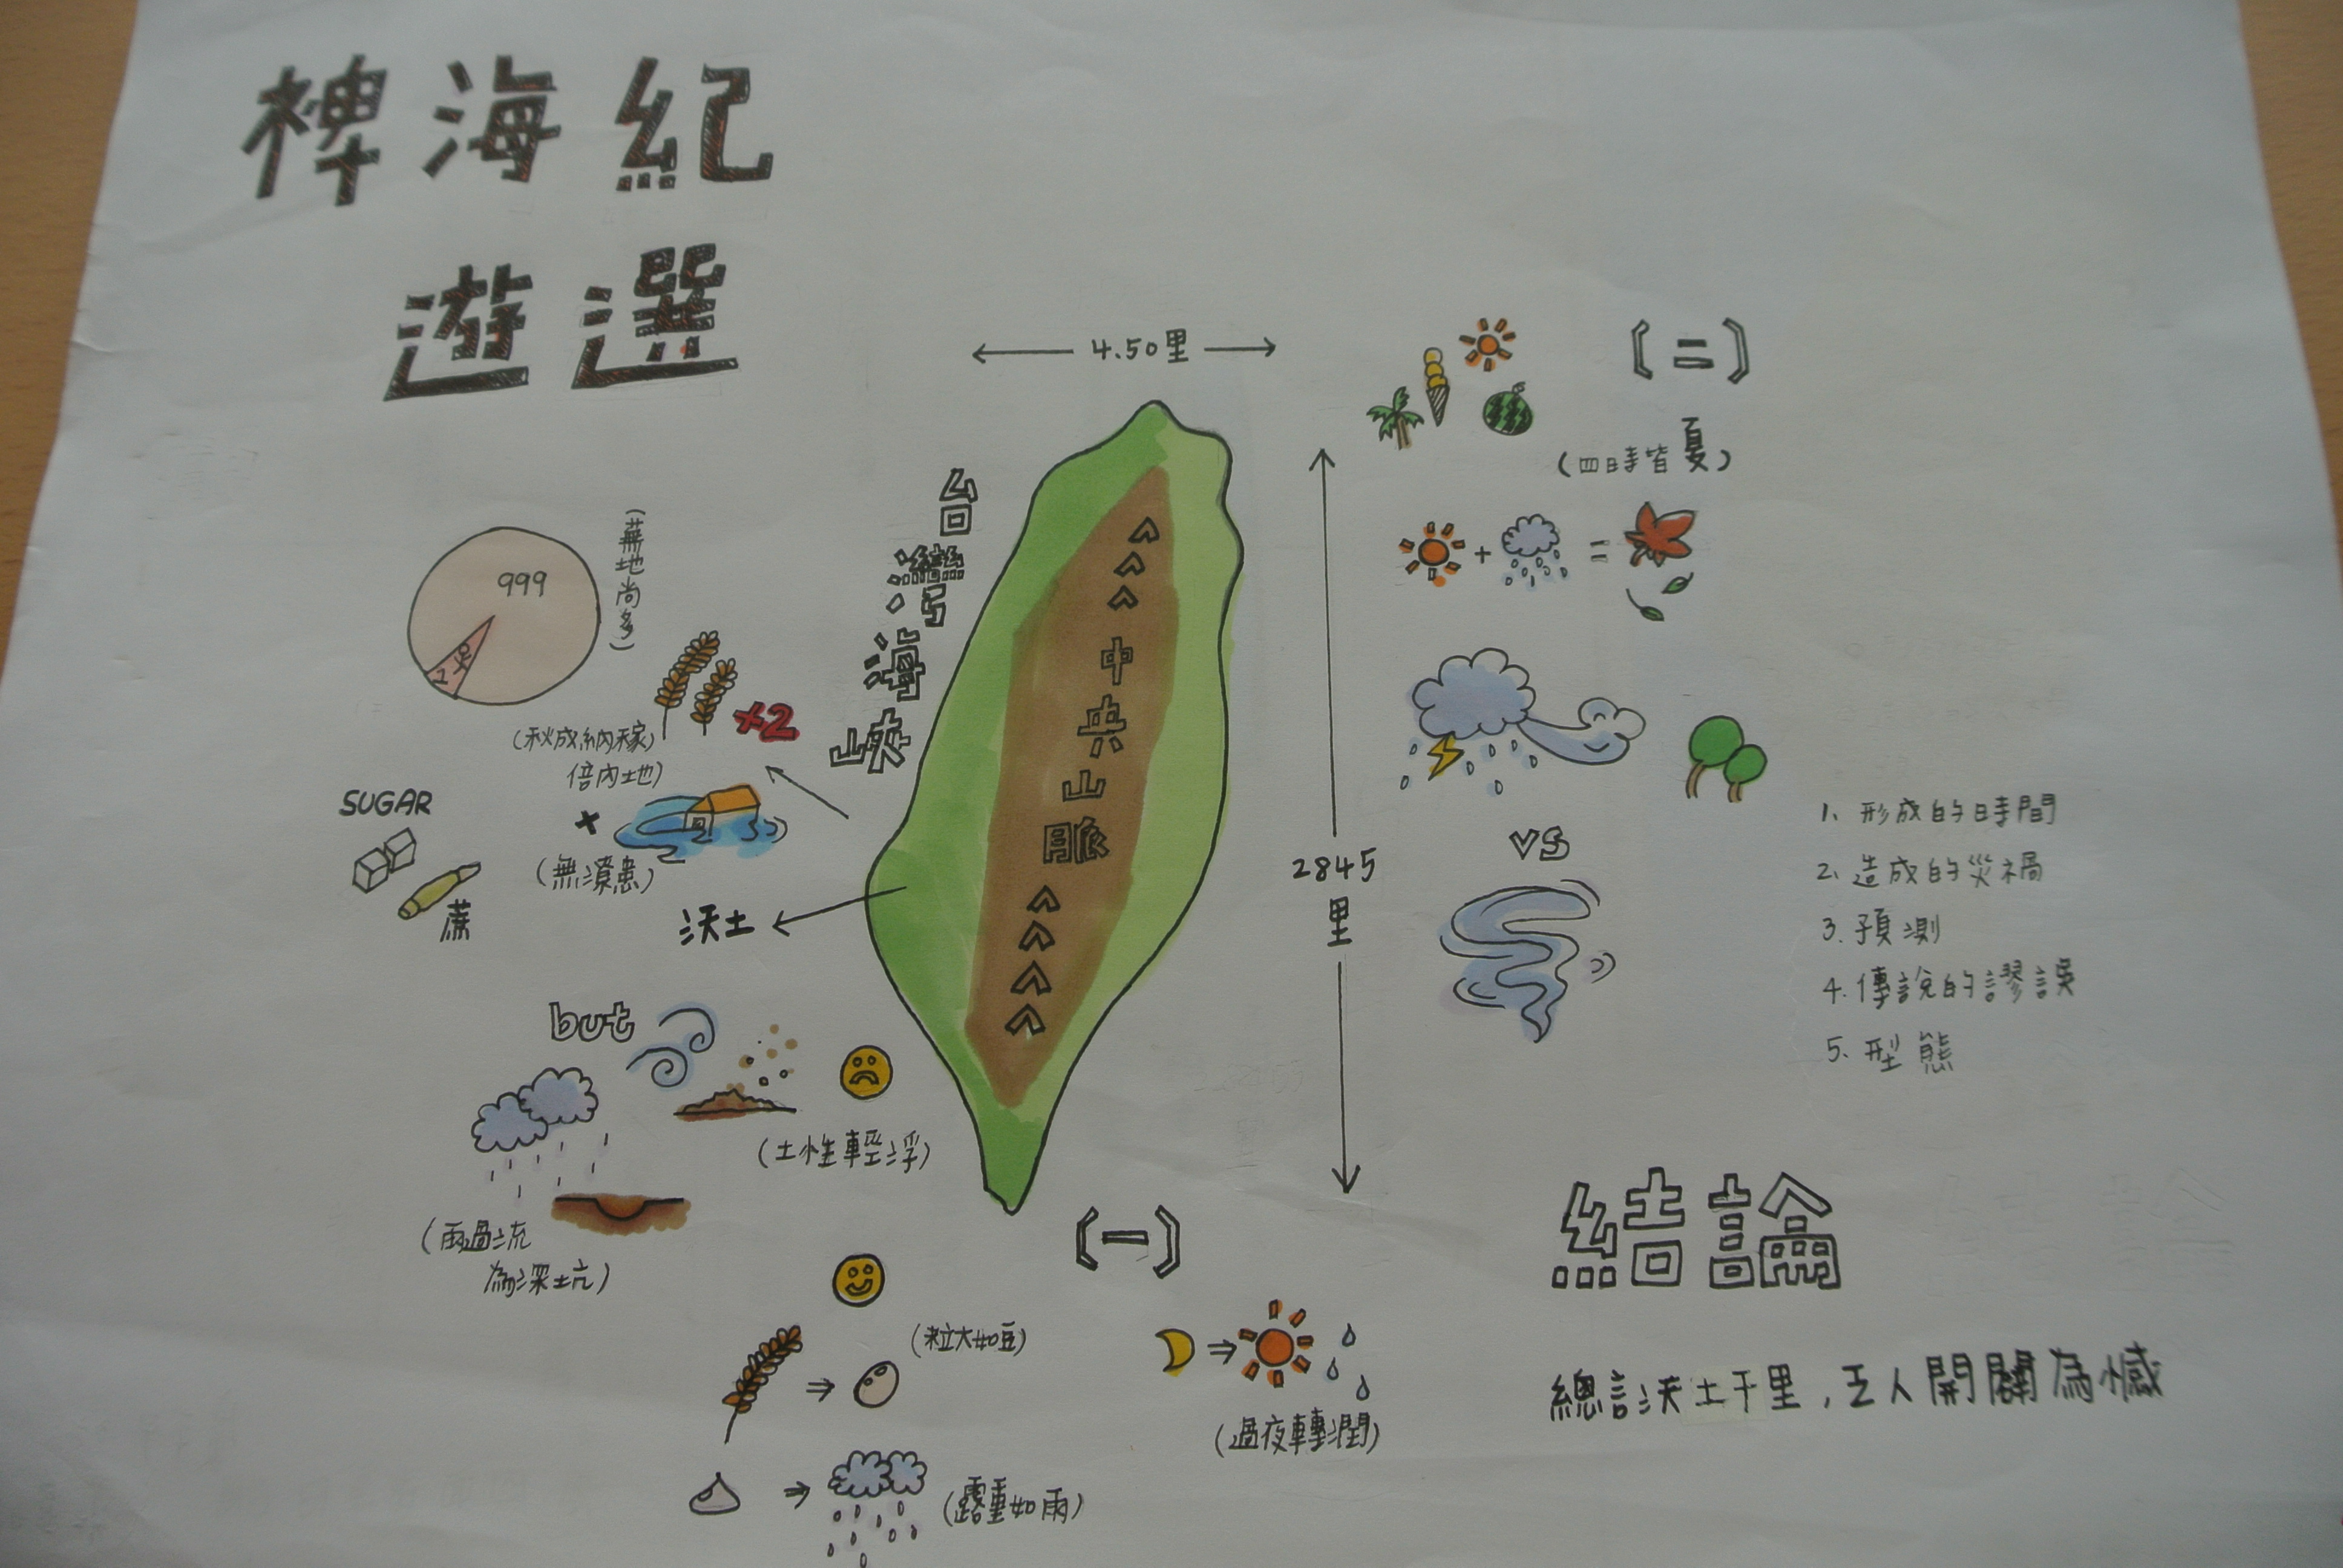 裨海紀
遊選
4.50里
〔二〕
(四時皆夏)
+
=
VS
1、形成的時間
2、造成的災禍
3、預測
4、傳說的謬誤
5、型態
2845
里
台灣海峽
中央山脈
^^^
^^^^
999
(蕪地尚多)
×2
(秋成納稼
倍內地)
+
(無潦患)
SUGAR
蔗
沃土
but
(土性輕浮)
(雨過流
為深坑)
〔一〕
(粒大如豆)
(露重如雨)
(過夜轉潤)
結論
總言沃土千里,乏人開闢為憾